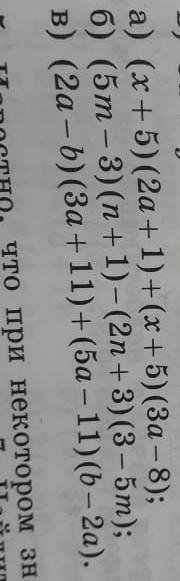 а) (x + 5)(2a + 1) + (x + 5)(3a − 8);
б) (5m − 3)(n + 1) − (2n + 3)(3 − 5m);
в) (2a − b)(3a + 11) + (5a − 11)(b − 2a).
что при некотором зн